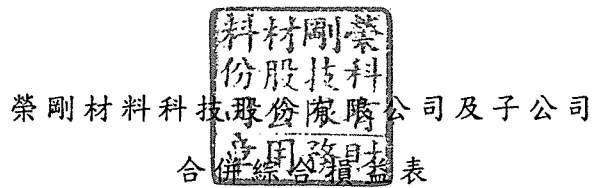 榮剛材料科技股份有限公司及子公司
合併綜合損益表
榮剛材料
科技股份